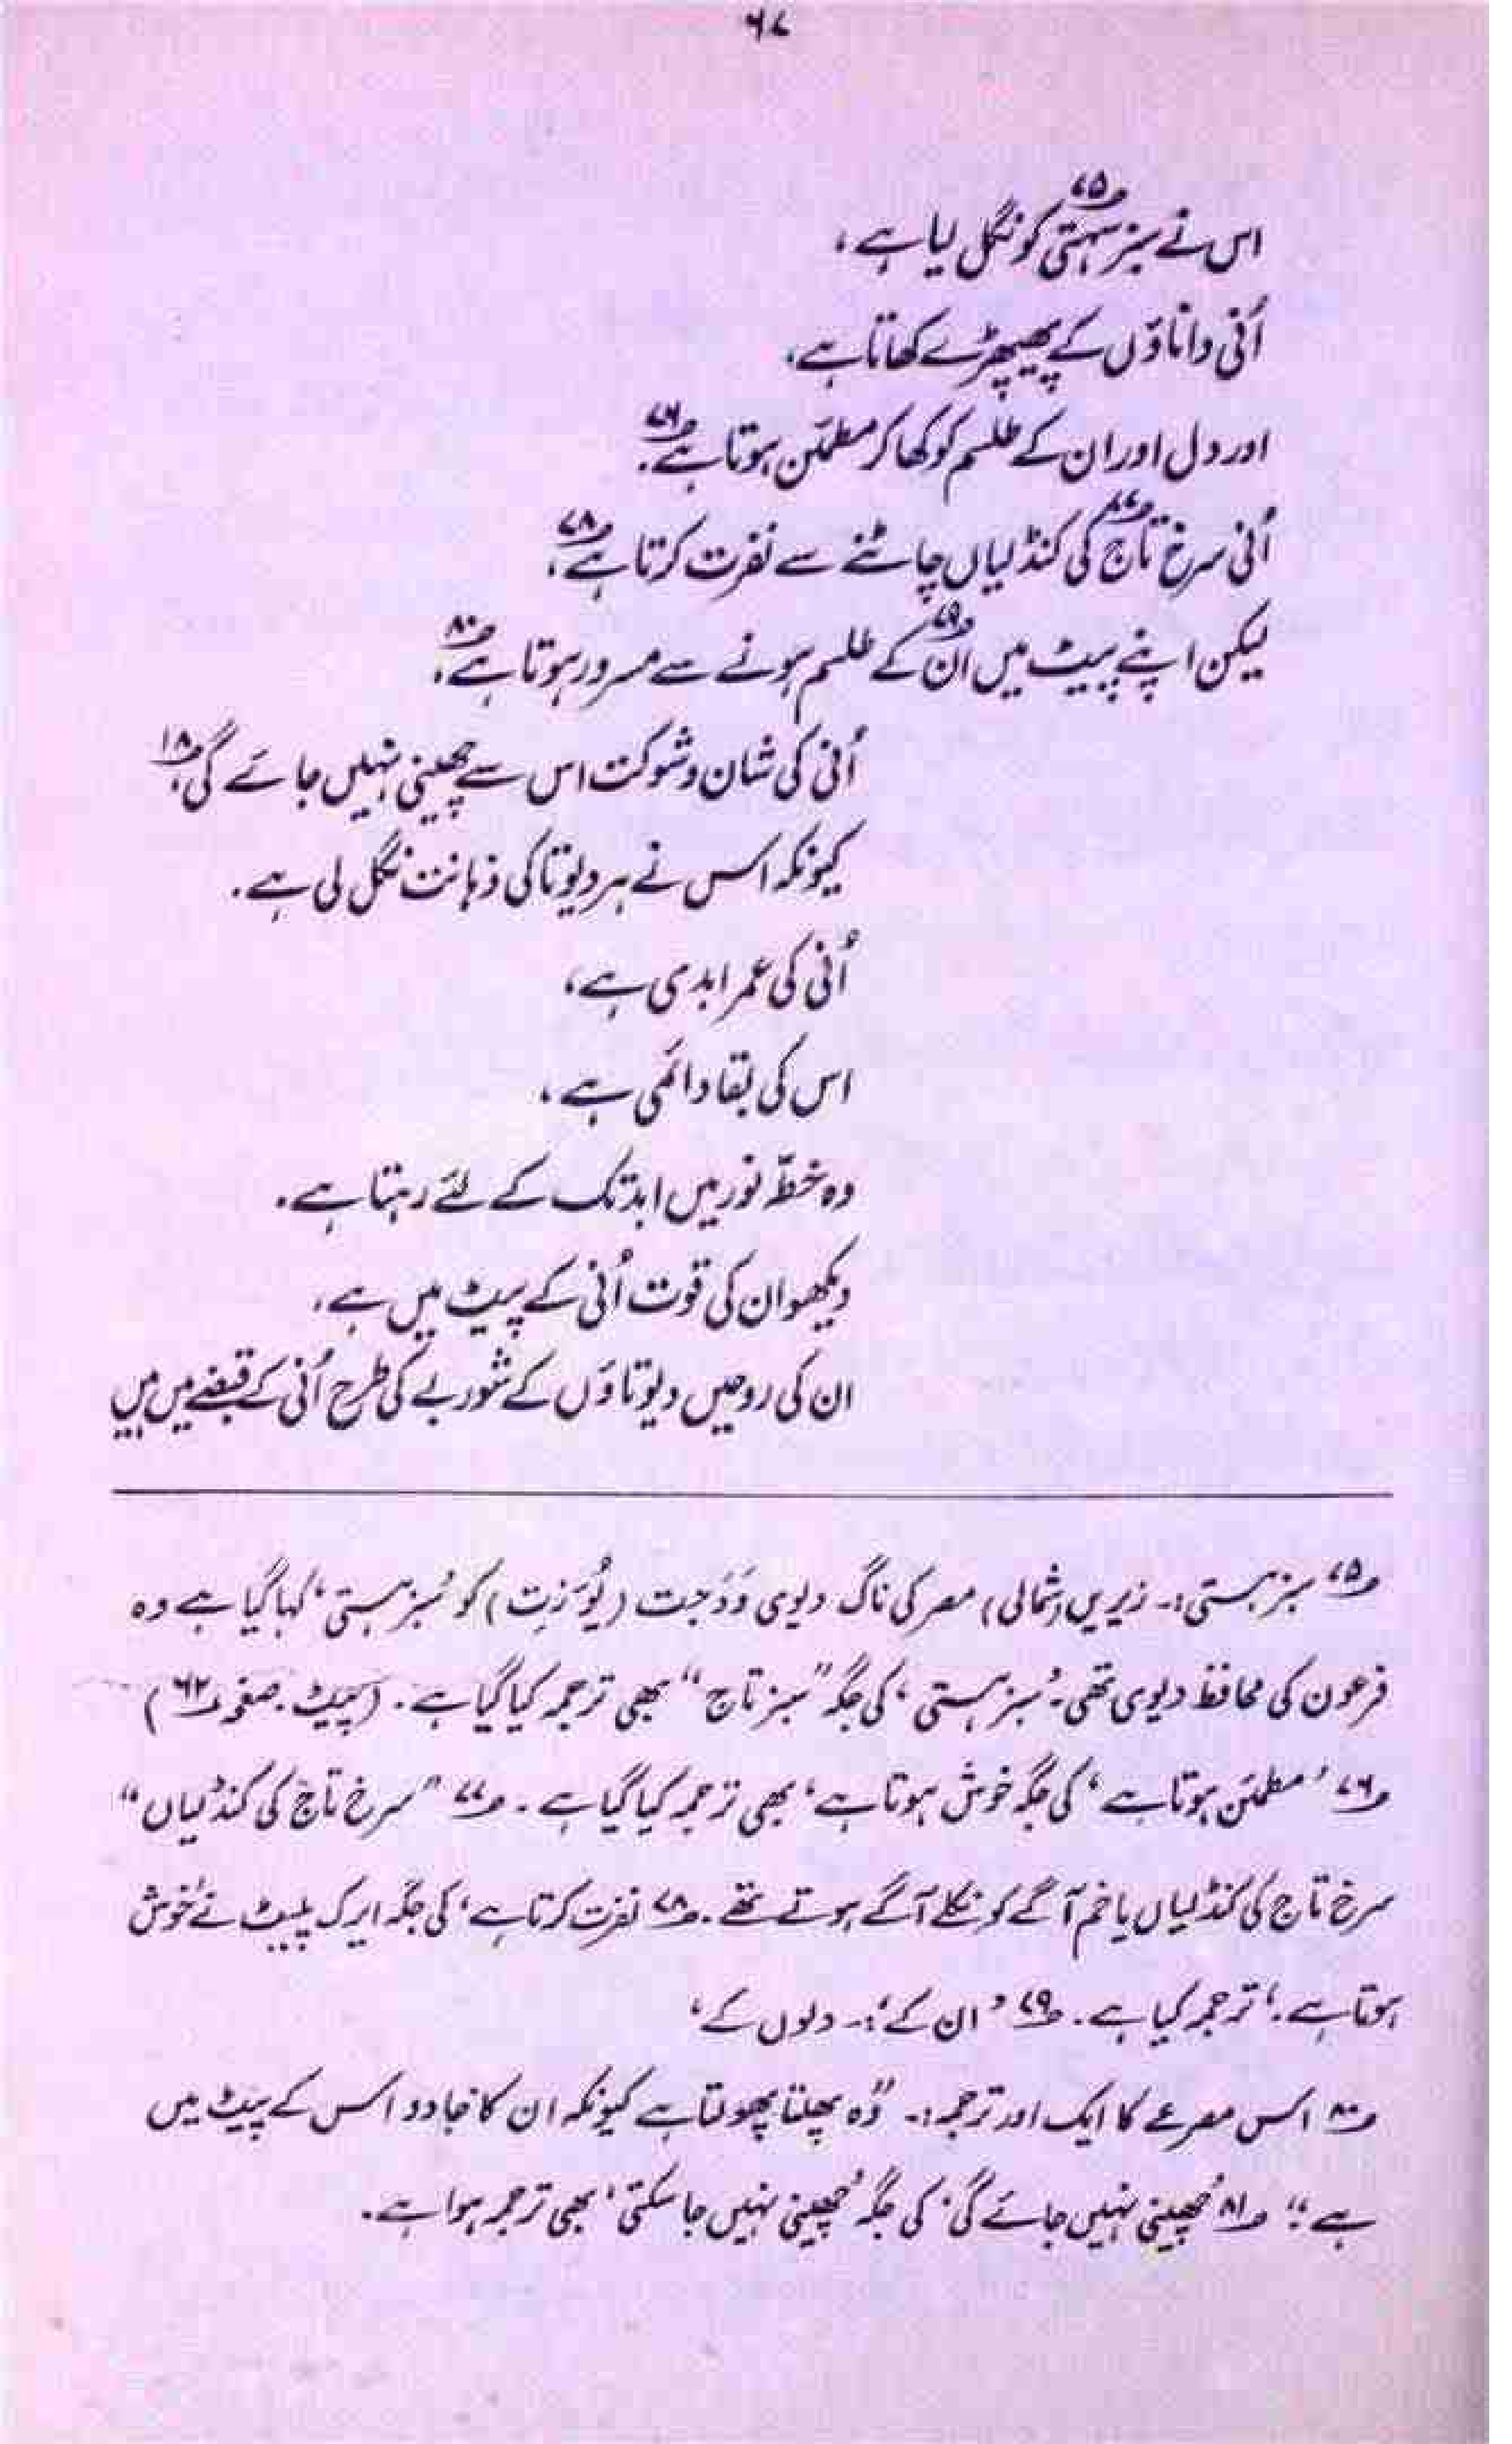 ۶۷
اس نے سبز ہستی۷۵ کو نگل لیا ہے،
اُنی داناؤں کے پھیپھڑے کھاتا ہے،
اور دل اور ان کے طلسم کو کھا کر مطمئن ہوتا ہے۷۶۔
اُنی سرخ تاج۷۷ کی کنڈلیاں چاٹنے سے نفرت کرتا ہے۷۸،
لیکن اپنے پیٹ میں اُن۷۹ کے طلسم ہونے سے مسرور ہوتا ہے۸۰،
اُنی کی شان و شوکت اس سے چھینی نہیں جائے گی۸۱،
کیونکہ اس نے ہر دیوتا کی ذہانت نگل لی ہے۔
اُنی کی عمر ابدی ہے،
اس کی بقا دائمی ہے،
وہ خطّہ نور میں ابد تک کے لئے رہتا ہے۔
دیکھو ان کی قوت اُنی کے پیٹ میں ہے،
ان کی روحیں دیوتاؤں کے شوربے کی طرح اُنی کے قبضے میں ہیں
۷۵ سبز ہستی:۔ زیریں (شمالی) مصر کی ناگ دیوی وَدَجت (بُوَزِت) کو ’سبز ہستی‘ کہا گیا ہے وہ
فرعون کی محافظ دیوی تھی۔ ’سبز ہستی‘ کی جگہ ”سبز تاج“ بھی ترجمہ کیا گیا ہے۔ (پیٹ۔ صفحہ ۶۲)
۷۶ ’مطمئن ہوتا ہے‘ کی جگہ خوش ہوتا ہے‘ بھی ترجمہ کیا گیا ہے۔ ۷۷ ”سرخ تاج کی کنڈلیاں“
سرخ تاج کی کنڈلیاں یا خم آگے کو نکلے آگے ہوتے تھے۔ ۷۸ نفرت کرتا ہے‘ کی جگہ ایرک پیٹ نے ’خوش
ہوتا ہے۔‘ ترجمہ کیا ہے۔ ۷۹ ’ان کے‘:۔ دلوں کے‘
۸۰ اس مصرعے کا ایک اور ترجمہ:۔ ”وہ پھلتا پھولتا ہے کیونکہ ان کا جادو اس کے پیٹ میں
ہے“ ۸۱ ’چھینی نہیں جائے گی‘ کی جگہ ’چھینی نہیں جا سکتی‘ بھی ترجمہ ہوا ہے۔